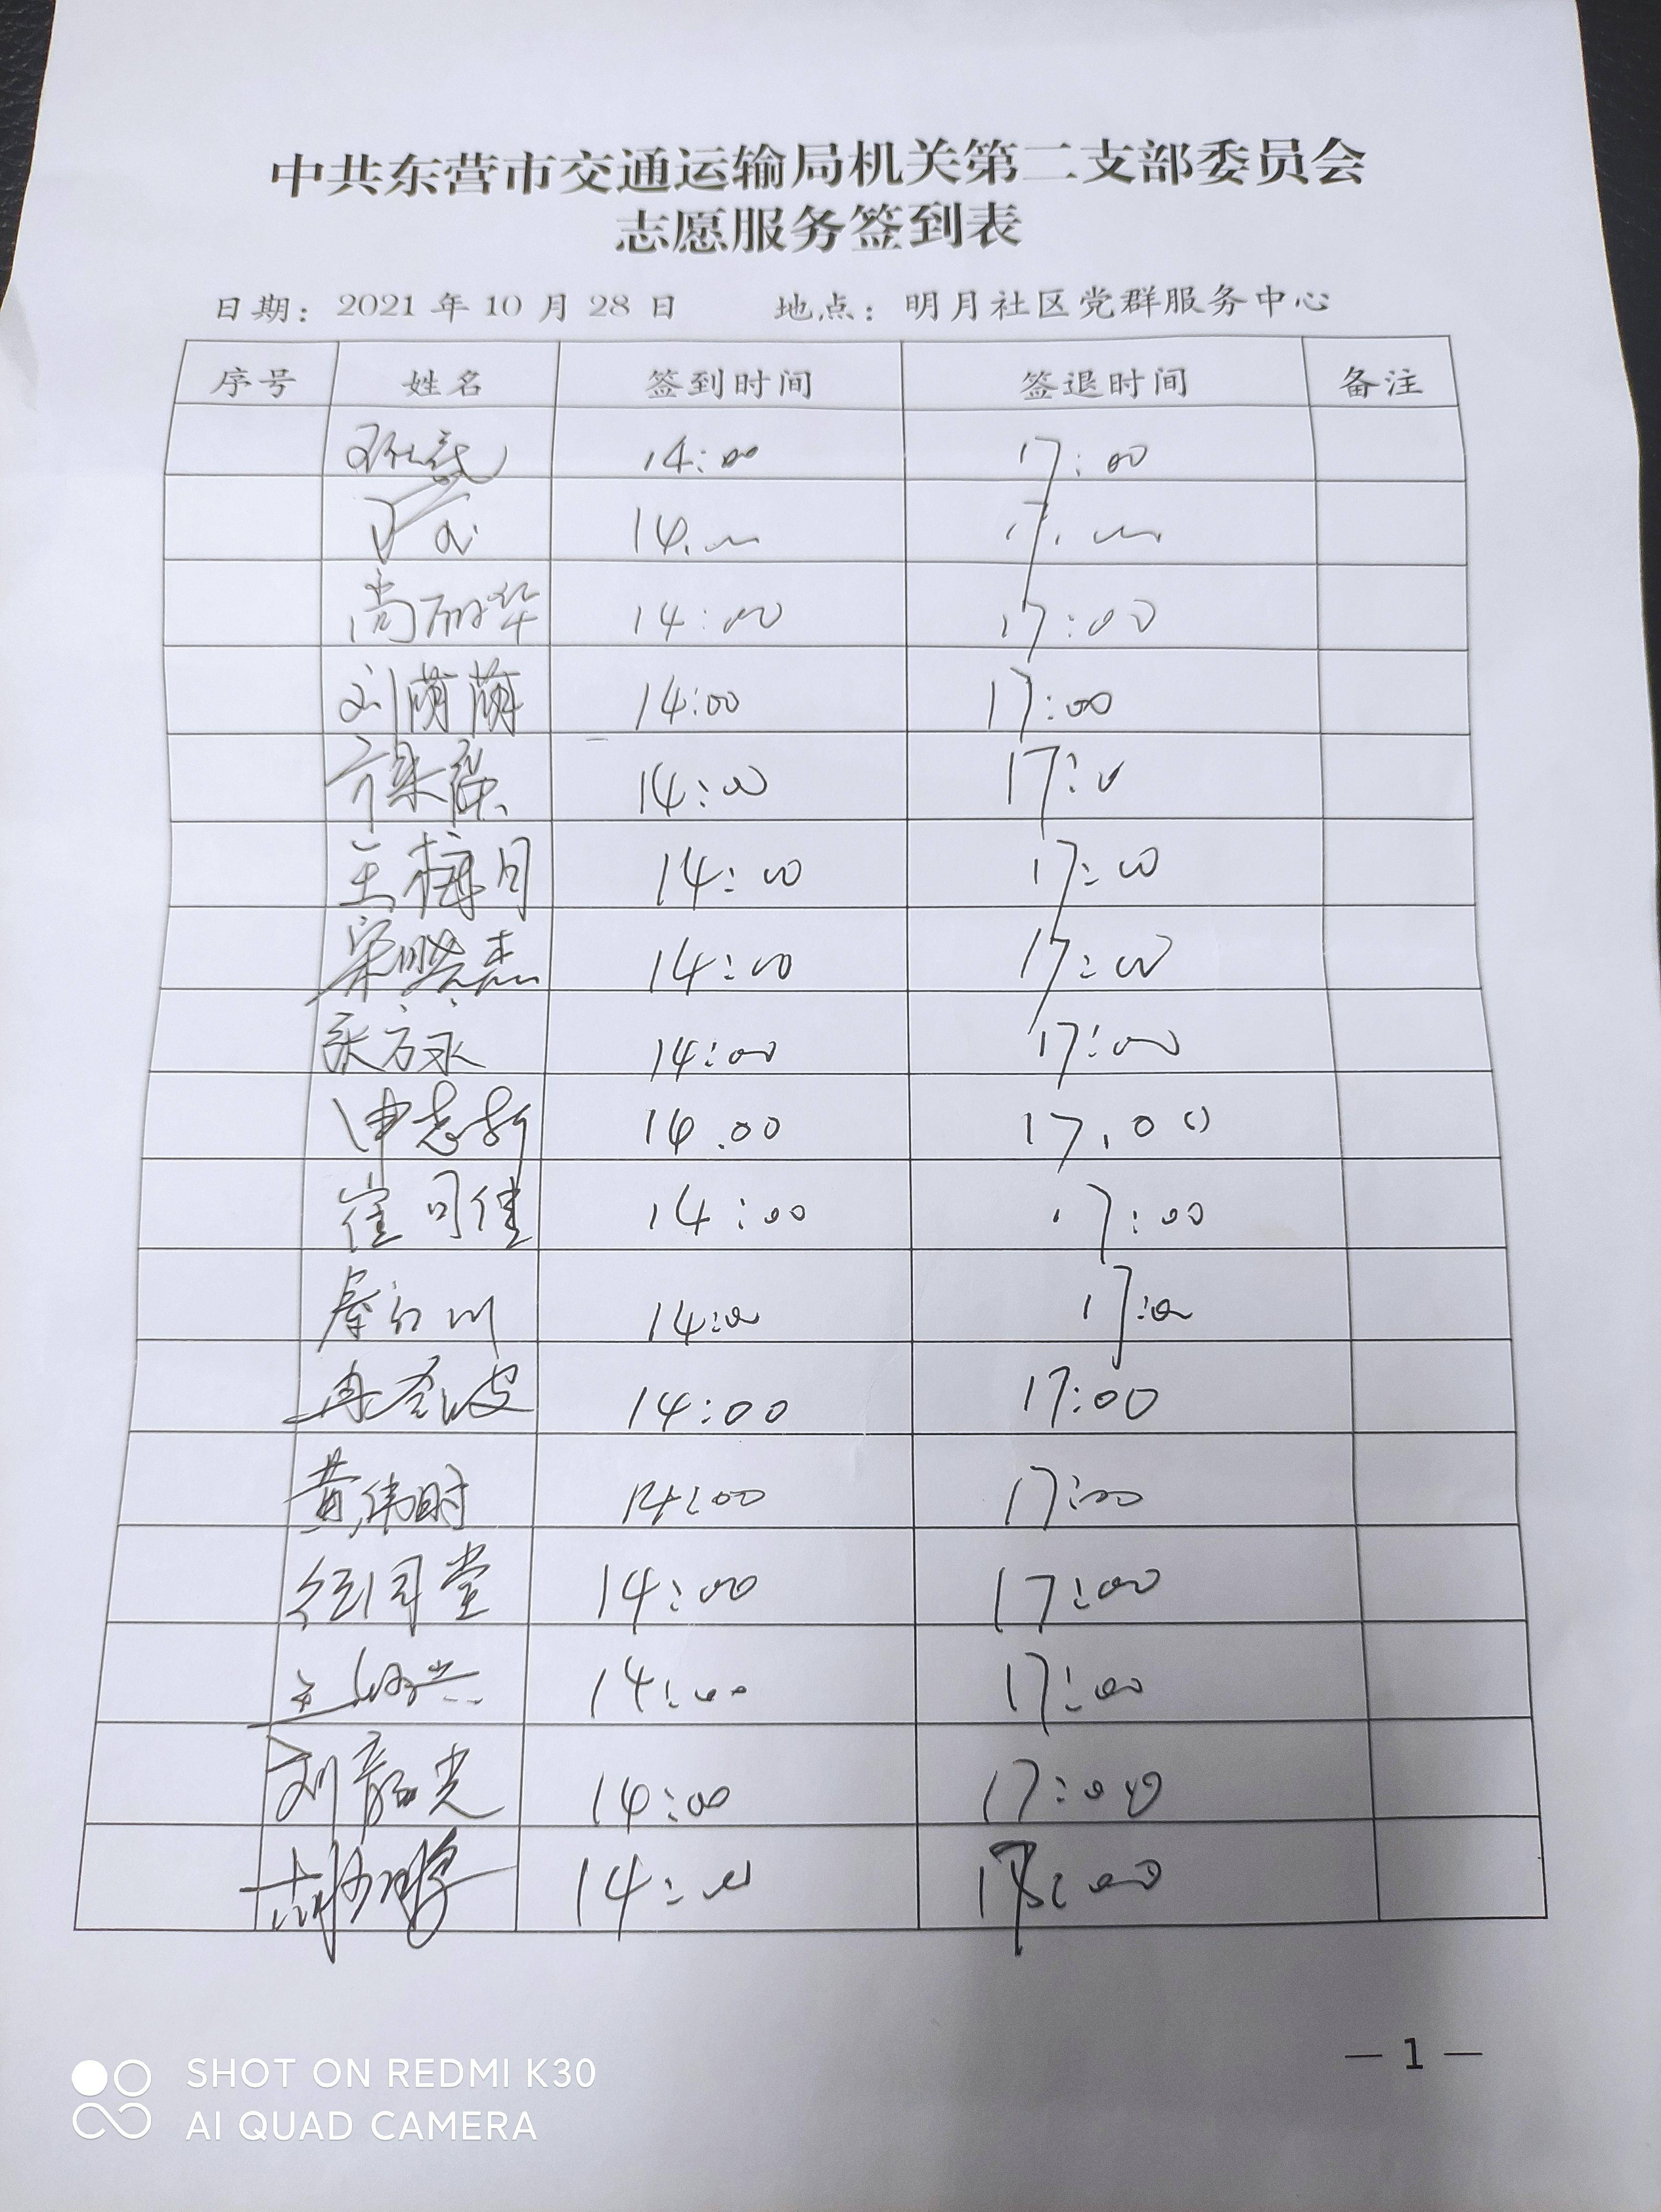 中共东营市交通运输局机关第二支部委员会
志愿服务签到表
日期: 2021 年 10 月 28 日 地点: 明月社区党群服务中心
序号 姓名 签到时间 签退时间 备注
14:00 17:00
14.00 17.00
尚丽华 14:00 17:00
刘萌萌 14:00 17:00
14:00 17:0
王梅月 14:00 17:00
宋 杰 14:00 17:00
张方永 14:00 17:00
申志新 14.00 17.00
崔司佳 14:00 17:00
秦 川 14:00 17:00
冉 波 14:00 17:00
黄伟时 14:00 17:00
徐同堂 14:00 17:00
王 兴 14:00 17:00
刘韶光 14:00 17:00
胡 鹏 14:00 :00
— 1 —
SHOT ON REDMI K30
AI QUAD CAMERA